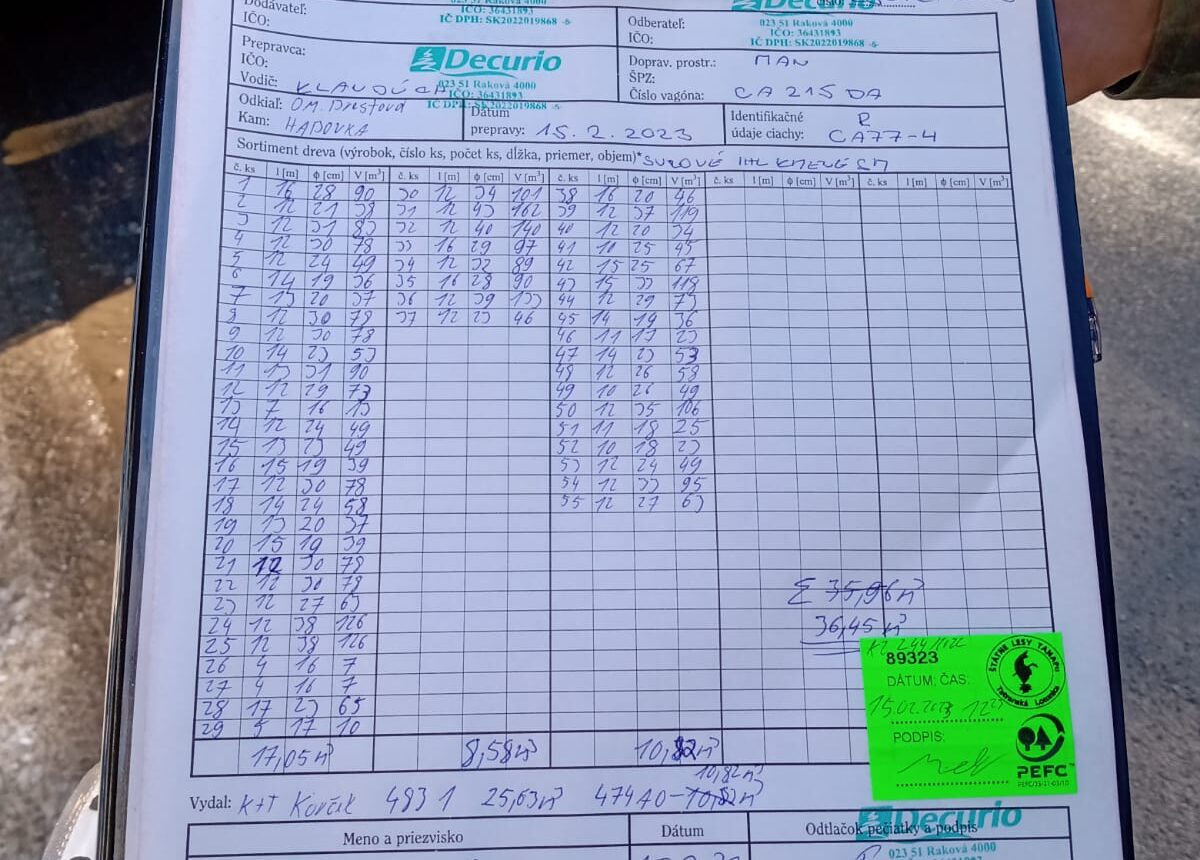 Dodávateľ:
IČO:
IČ DPH: SK2022019868 -6-
Odberateľ:
IČO:
023 51 Raková 4000
IČO: 36431893
IČ DPH: SK2022019868 -6-
Prepravca:
IČO:
Vodič:
Decurio
023 51 Raková 4000
IČO: 36431893
IČ DPH: SK2022019868 -6-
Doprav. prostr.: MAN
ŠPZ:
Číslo vagóna: CA 215 DA
Odkiaľ: OM. Brestová
Kam: HADOVKA
Dátum
prepravy: 15.2.2023
Identifikačné
údaje ciachy: R CA77-4
Sortiment dreva (výrobok, číslo ks, počet ks, dĺžka, priemer, objem)* SUROVÉ IHL KMENE SM
č. ks l [m] ϕ [cm] V [m³] č. ks l [m] ϕ [cm] V [m³] č. ks l [m] ϕ [cm] V [m³] č. ks l [m] ϕ [cm] V [m³] č. ks l [m] ϕ [cm] V [m³]
1 16 28 90 30 12 34 101 38 16 20 46
2 12 21 38 31 12 43 162 39 12 37 119
3 12 31 83 32 12 40 140 40 12 20 34
4 12 30 78 33 16 29 97 41 10 25 45
5 12 24 49 34 12 32 89 42 15 25 67
6 14 19 36 35 16 28 90 43 15 33 118
7 13 20 37 36 12 39 133 44 12 29 73
8 12 30 78 37 12 23 46 45 14 19 36
9 12 30 78 46 11 17 23
10 14 23 53 47 14 23 53
11 13 31 90 48 12 26 58
12 12 29 73 49 10 26 49
13 7 16 13 50 12 35 106
14 12 24 49 51 11 18 25
15 13 23 49 52 10 18 23
16 15 19 39 53 12 24 49
17 12 30 78 54 12 33 95
18 14 24 58 55 12 27 63
19 13 20 37
20 15 19 39
21 12 30 78
22 12 30 78
23 12 27 63
24 12 38 126
25 12 38 126
26 4 16 7
27 4 16 7
28 17 23 65
29 5 17 10
Σ 35,96 m³
36,45 m³
17,05 m³ 8,58 m³ 10,82 m³
10,82 m³
89323
DÁTUM; ČAS:
15.02.2023
PODPIS:
ŠTÁTNE LESY TANAPU
Tatranská Lomnica
PEFC™
Vydal: K+T Korčik 483 1 25,63 m³ 474 A0 -
Meno a priezvisko Dátum Odtlačok pečiatky a podpis
Decurio
023 51 Raková 4000